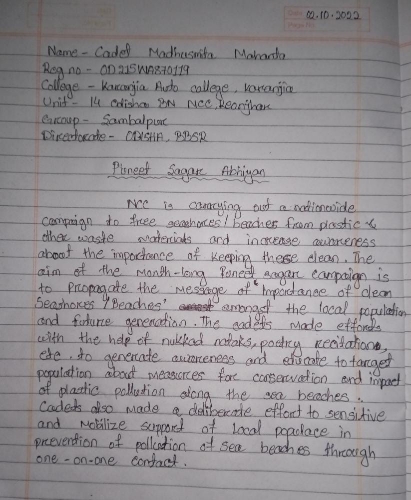 02.10.2022
Name - Cadet Madhusmita Mahanta
Reg no - OD21SWA870119
College - Karanjia Auto college, Karanjia
Unit - 14 Odisha BN NCC, Keonjhar
Group - Sambalpur
Directorate - ODISHA, BBSR
Puneet Sagar Abhiyan
NCC is carrying out a nationwide
campaign to free seashores/beaches from plastic &
other waste materials and increase awareness
about the importance of keeping these clean. The
aim of the month-long Puneet sagar campaign is
to propagate the message of "importance of clean
Seashores/Beaches' amongst the local population
and future generation. The cadets made efforts
with the help of nukkad nataks, poetry recitations,
etc. to generate awareness and educate to target
population about measures for conservation and impact
of plastic pollution along the sea beaches.
Cadets also made a deliberate effort to sensitive
and Mobilize support of local populace in
prevention of pollution of sea beaches through
one-on-one contact.